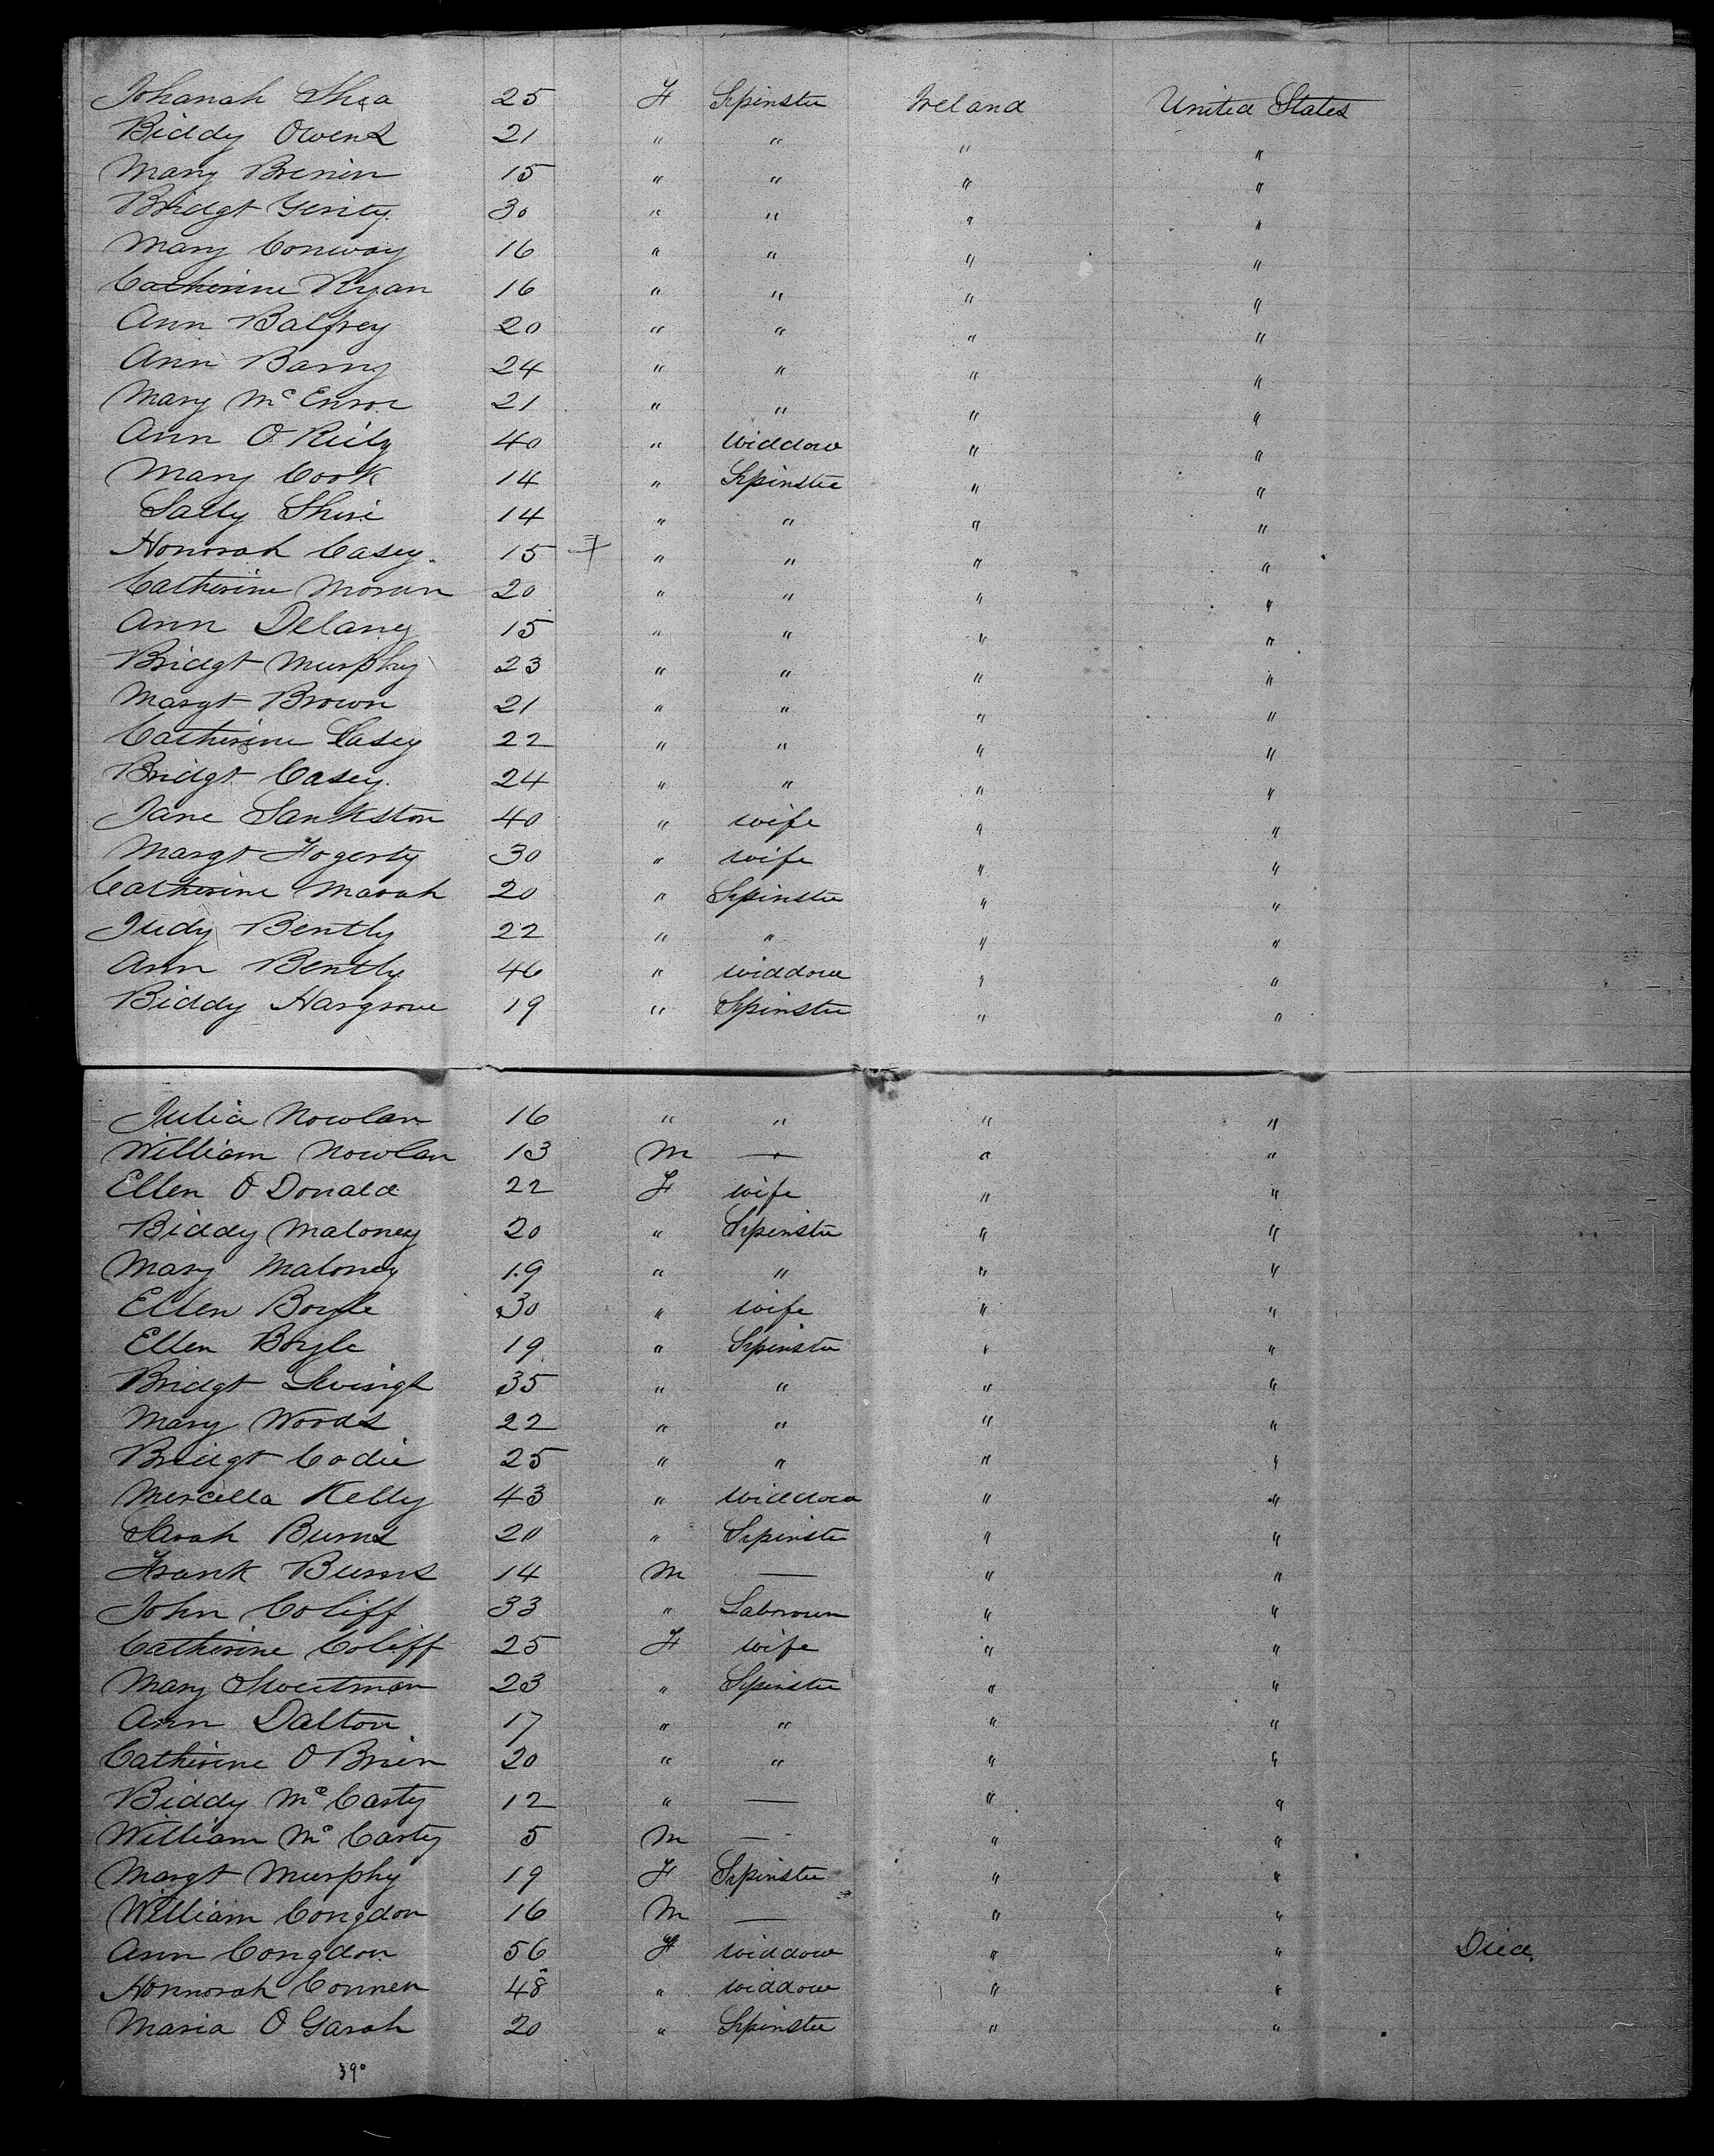 Johanah Shea 25 F Spinster Ireland United States
Biddy Owens 21 " " " "
Mary Brenin 15 " " " "
Bridgt Gerity 30 " " " "
Mary Conway 16 " " " "
Catherine Ryan 16 " " " "
Ann Balfrey 20 " " " "
Ann Barry 24 " " " "
Mary McEnroe 21 " " " "
Ann O Reily 40 " Widdow " "
Mary Cook 14 " Spinster " "
Sally 14 " " " "
Honorah Casey 15 " " " "
Catherine Moran 20 " " " "
Ann Delany 15 " " " "
Bridgt Murphy 23 " " " "
Margt Brown 21 " " " "
Catherine Casey 22 " " " "
Bridgt Casey 24 " " " "
Jane Sankston 40 " wife " "
Margt Hogerty 30 " wife " "
Catherine Marah 20 " Spinster " "
Judy Bently 22 " " " "
Ann Bently 46 " Widdow " "
Biddy Hargrove 19 " Spinster " "
Julia Nowlan 16 " " " "
William Nowlan 13 M — " "
Ellen O Donald 22 F wife " "
Biddy Maloney 20 " Spinster " "
Mary Maloney 19 " " " "
Ellen Boyle 30 " wife " "
Ellen Boyle 19 " Spinster " "
Bridgt 35 " " " "
Mary Woods 22 " " " "
Bridgt Codie 25 " " " "
Mercella Kelly 43 " Widdow " "
Sarah Burns 20 " Spinster " "
Frank Burns 14 M — " "
John Coliff 33 " " "
Catherine Coliff 25 F wife " "
Mary Sweetman 23 " Spinster " "
Ann Dalton 17 " " " "
Catherine O Brien 20 " " " "
Biddy McCarty 12 " — " "
William McCarty 5 M — " "
Margt Murphy 19 F Spinster " "
William Congdon 16 M — " "
Ann Congdon 56 F Widdow " " Died
Honnorah Connen 48 " Widdow " "
Maria O Garah 20 " Spinster " "
390